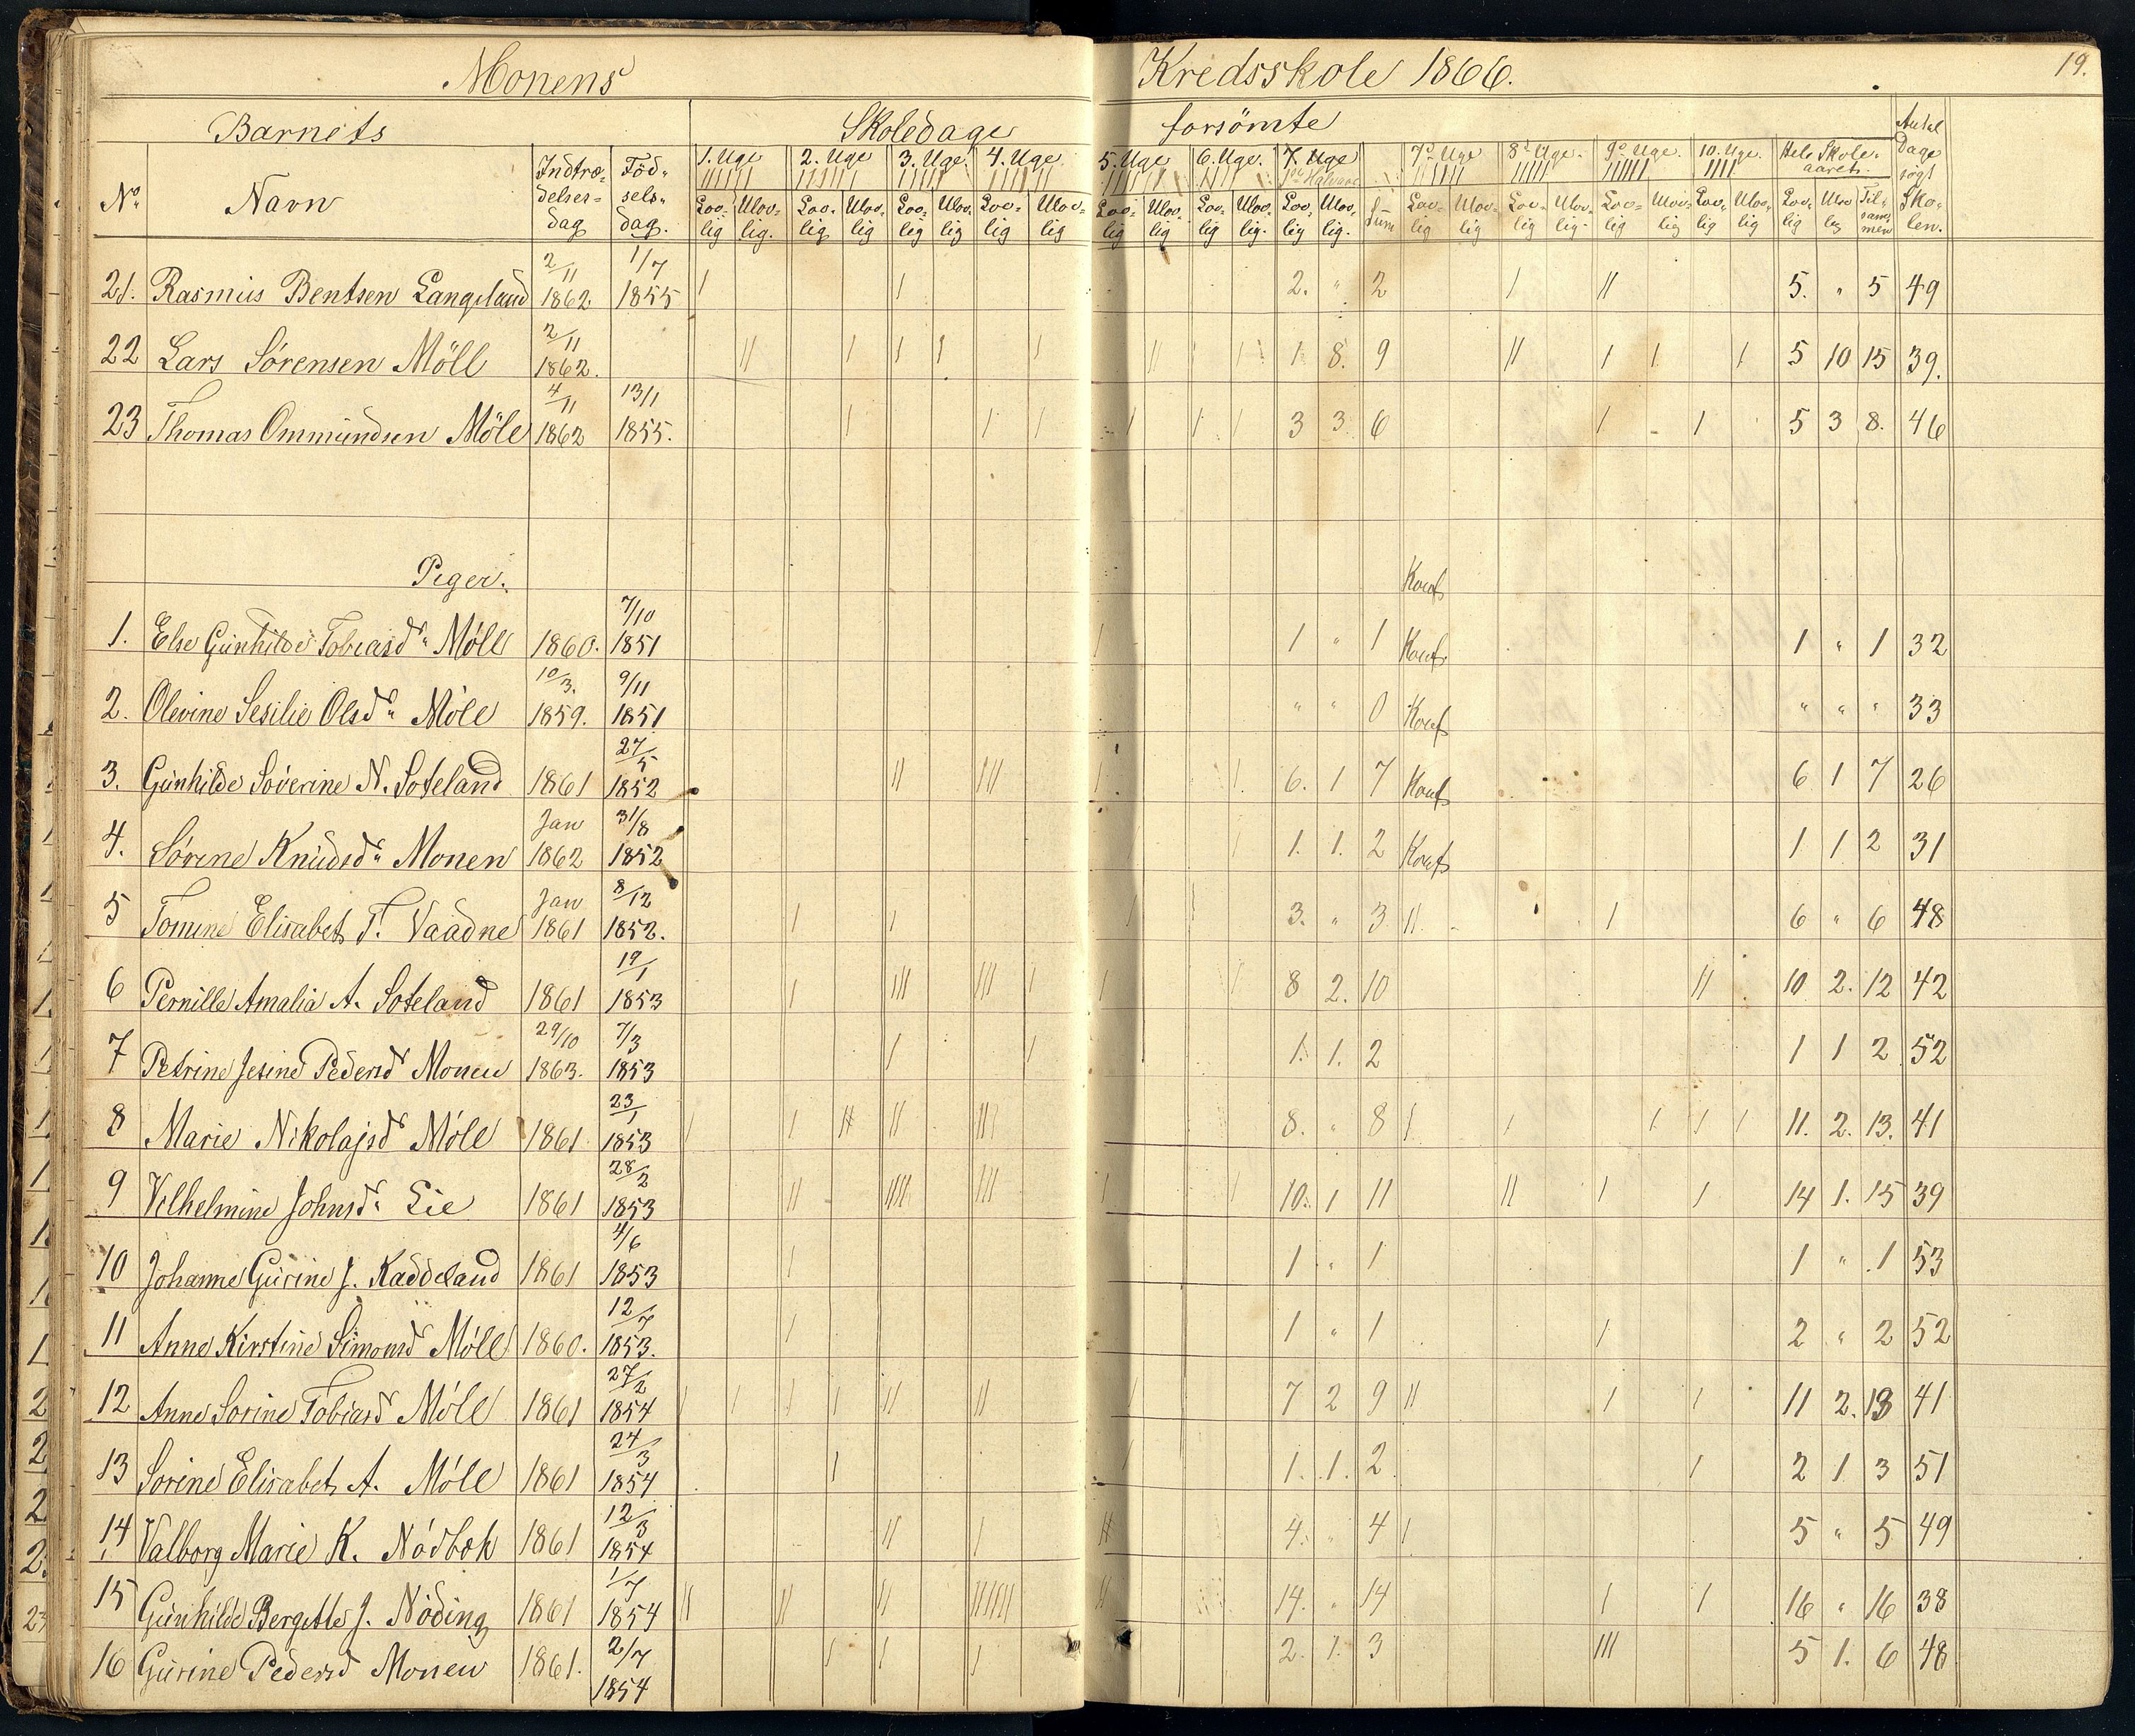 Monens Kredsskole 1866. 19.
Barnets Skoledage forsömte Antal Dage sögt Sko-len.
No Navn Indtræ-delses-dag Föd-sels-dag. 1. Uge 2. Uge 3. Uge 4. Uge 5. Uge 6. Uge. 7. Uge 1ste Halvaar 7de Uge 8de Uge. 9de Uge. 10. Uge. Hele Skole-aaret.
Lov-lig Ulov-lig. Lov-lig Ulov-lig Lov-lig Ulov-lig Lov-lig Ulov-lig Lov-lig Ulov-lig Lov-lig Ulov-lig. Lov-lig Ulov-lig. Sum Lov-lig Ulov-lig Lov-lig Ulov-lig. Lov-lig Ulov-lig Lov-lig Ulov-lig Lov-lig Ulov-lig Til-sam-men
21. Rasmus Bentsen Langeland 2/11 1862 1/7 1855 2. " 2 5. " 5 49
22 Lars Sörensen Möll 2/11 1862. 1 8. 9 5 10 15 39.
23 Thomas Ommundsen Möll 4/11 1862 13/1 1855. 3 3. 6 5 3 8. 46
Piger.
Konf
1. Else Gunhilde Tobiasd. Möll 1860. 7/10 1851 1 " 1 Konf. 1 " 1 32
2. Olevine Sesilie Olsd. Möll 10/3. 1859. 9/11 1851 " " 0 Konf " " " 33
3. Gunhilde Söverine N. Soteland 1861 27/5 1852 6. 1 7 Konf 6 1 7 26
4. Sörine Knudsd. Monen Jan 1862 31/8 1852 1. 1. 2 Konf 1 1 2 31
5 Tomine Elisabet T. Vaadne Jan 1861 8/12 1852. 3. " 3 6 " 6 48
6 Pernille Amalia A. Soteland 1861 19/1 1853 8 2. 10 10 2. 12 42
7 Petrine Jesine Pedersd Monen 29/10 1863. 7/3 1853 1. 1. 2 1 1 2 52
8 Marie Nikolajsd Möll 1861 23/1 1853 8. " 8 11. 2. 13. 41
9 Vilhelmine Johnsd. Lie 1861 28/2 1853 10. 1 11 14 1. 15 39
10 Johanne Gurine J. Kaddeland 1861 4/6 1853 1 " 1 1 " 1 53
11 Anne Kirstine Simonsd Möll 1860. 12/7 1853. 1 " 1 2 " 2 52
12 Anne Sorine Tobiasd Möll 1861 27/2 1854 7 2 9 11 2. 13 41
13 Sorine Elisabet A. Möll 1861 24/3 1854 1. 1. 2 2 1 3 51
14 Valborg Marie K. Nödbæk 1861 12/3 1854 4. " 4 5 " 5 49
15 Gunhilde Bergitte J. Nöding 1861 1/7 1854 14. " 14 16 " 16 38
16 Gurine Pedersd Monen 1861. 2/7 1854 2. 1. 3 5 1. 6 48